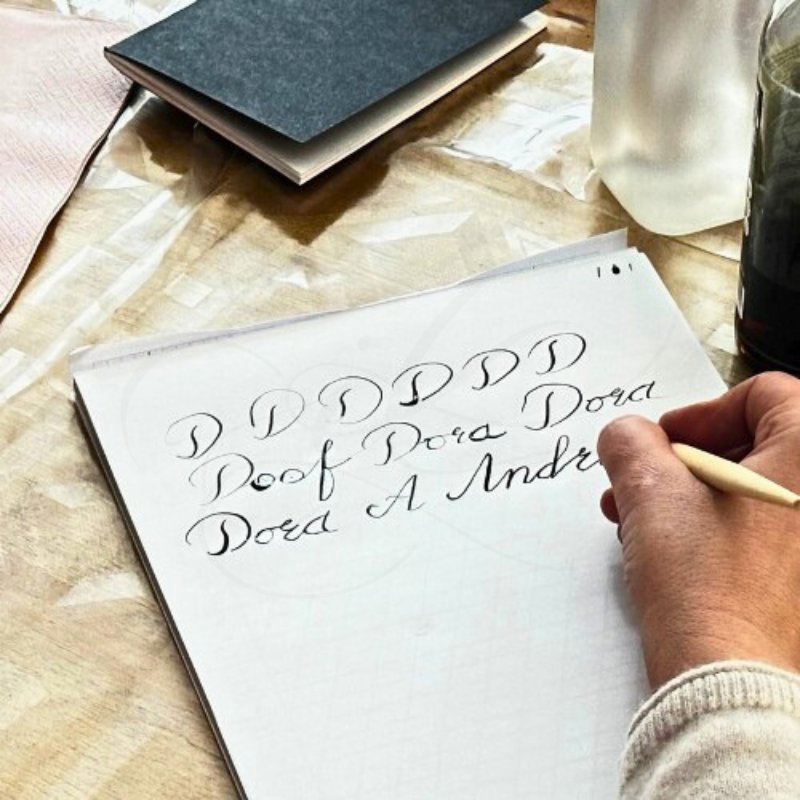 D D D D D D
Doof Dora Dora
Dora A Andr